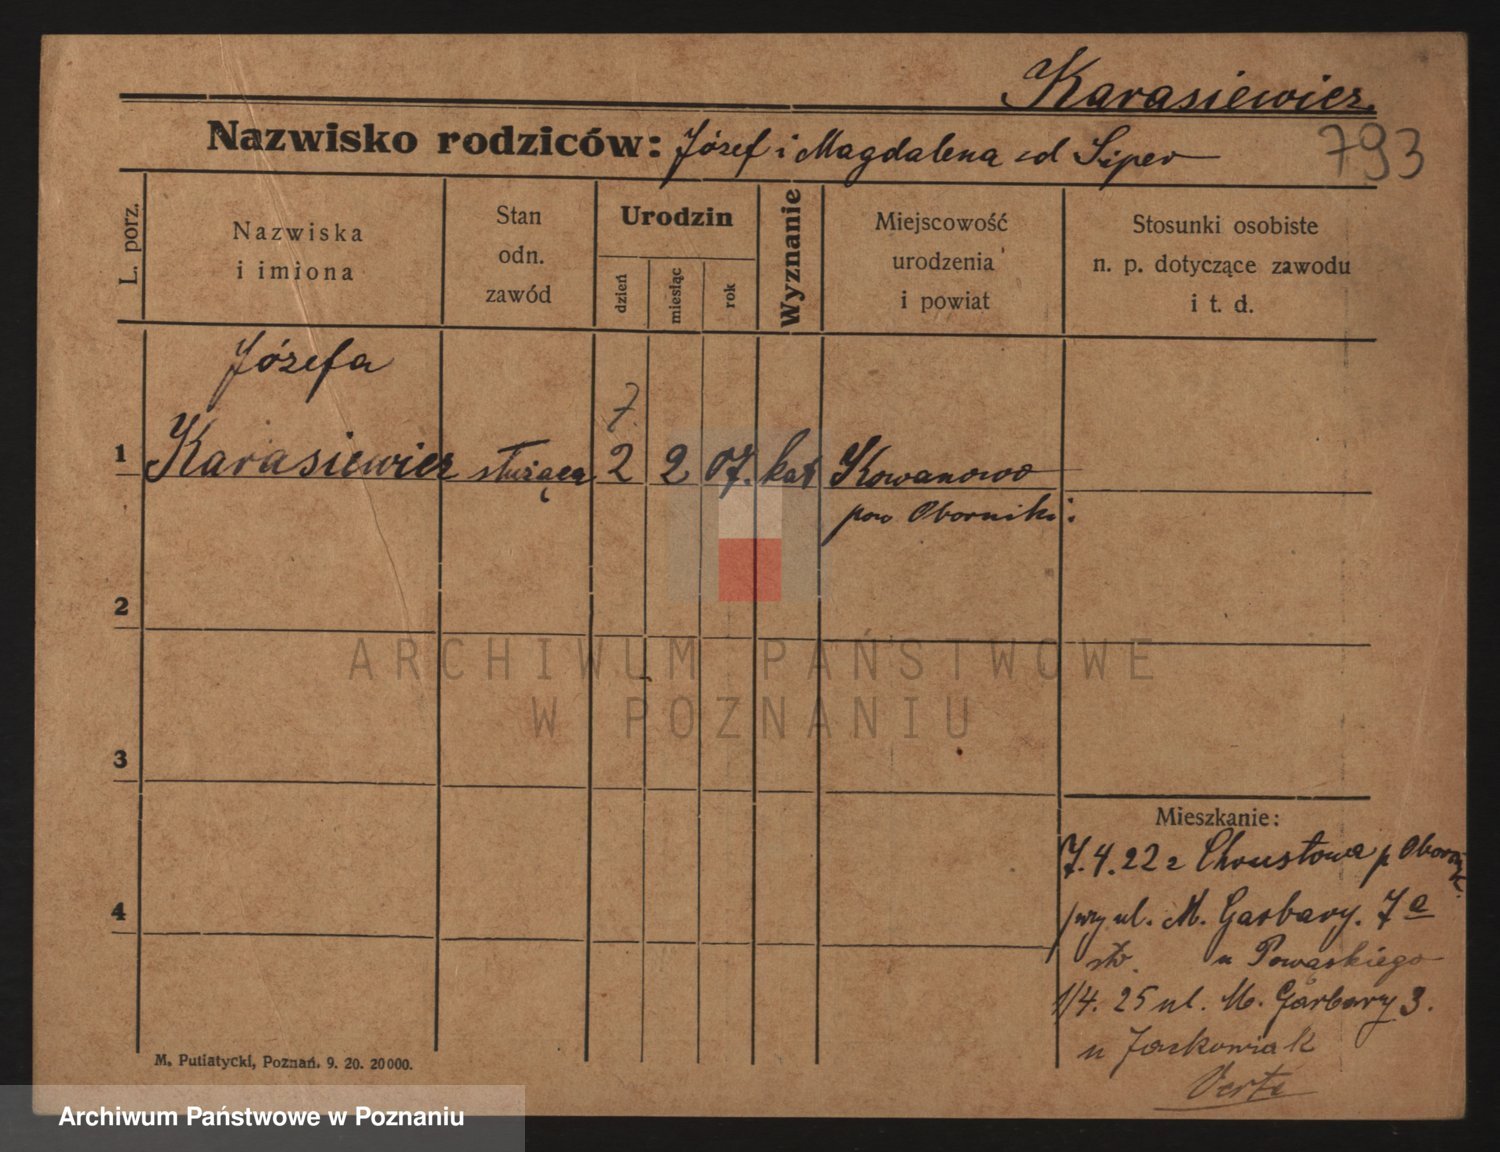 Karasiewicz
Nazwisko rodziców: Józef i Magdalena zd Siper
793
L. porz.
Nazwiska
i imiona
Stan
odn.
zawód
Urodzin
dzień
miesiąc
rok
Wyznanie
Miejscowość
urodzenia
i powiat
Stosunki osobiste
n. p. dotyczące zawodu
i t. d.
Józefa
7.
1 Karasiewicz służąca 2 2 07. kat Kowanowo
pow Oborniki.
2
ARCHIWUM PAŃSTWOWE
W POZNANIU
3
Mieszkanie:
7.4.22 z Chrustowa p Oborn
4
przy ul. M. Garbary. 7a
sł. u Powąskiego
1/4. 25 ul. M. Garbary 3.
u Jaskowiak
Verte
M. Putiatycki, Poznań. 9. 20. 20000.
Archiwum Państwowe w Poznaniu